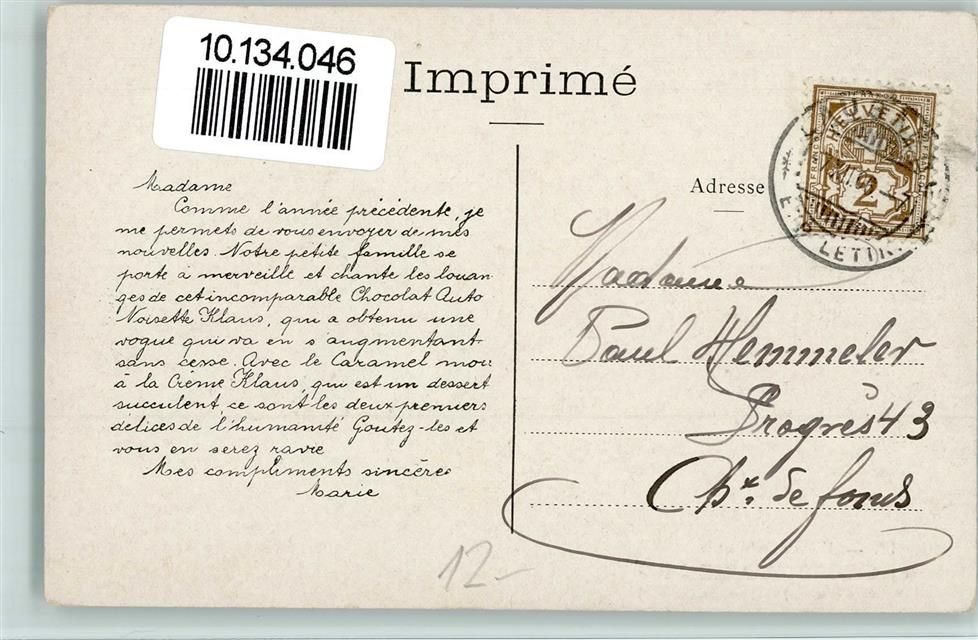 10.134.046
Imprimé
HELVETIA
2
Adresse
Madame
Comme l'année précédente, je
me permets de vous envoyer de mes
nouvelles. Notre petite famille se
porte à merveille et chante les louan
ges de cet incomparable Chocolat Auto
Noisette Klaus, qui a obtenu une
vogue qui va en s augmentant
sans cesse. Avec le Caramel mou
à la Crème Klaus, qui est un dessert
succulent, ce sont les deux premiers
délices de l'humanité Goutez-les et
vous en serez ravie
Mes compliments sincères
Marie
Madame
Paul Hemmeler
Progrès 43
Chx. de fonds
12-